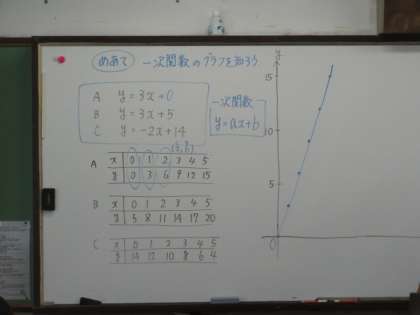 めあて 一次関数のグラフを知ろう
A y=3x+0
B y=3x+5
C y=-2x+14
一次関数
y=ax+b
A x 0 1 2 3 4 5
y 0 3 6 9 12 15
B x 0 1 2 3 4 5
y 5 8 11 14 17 20
C x 0 1 2 3 4 5
y 14 12 10 8 6 4
y
15
10
5
0